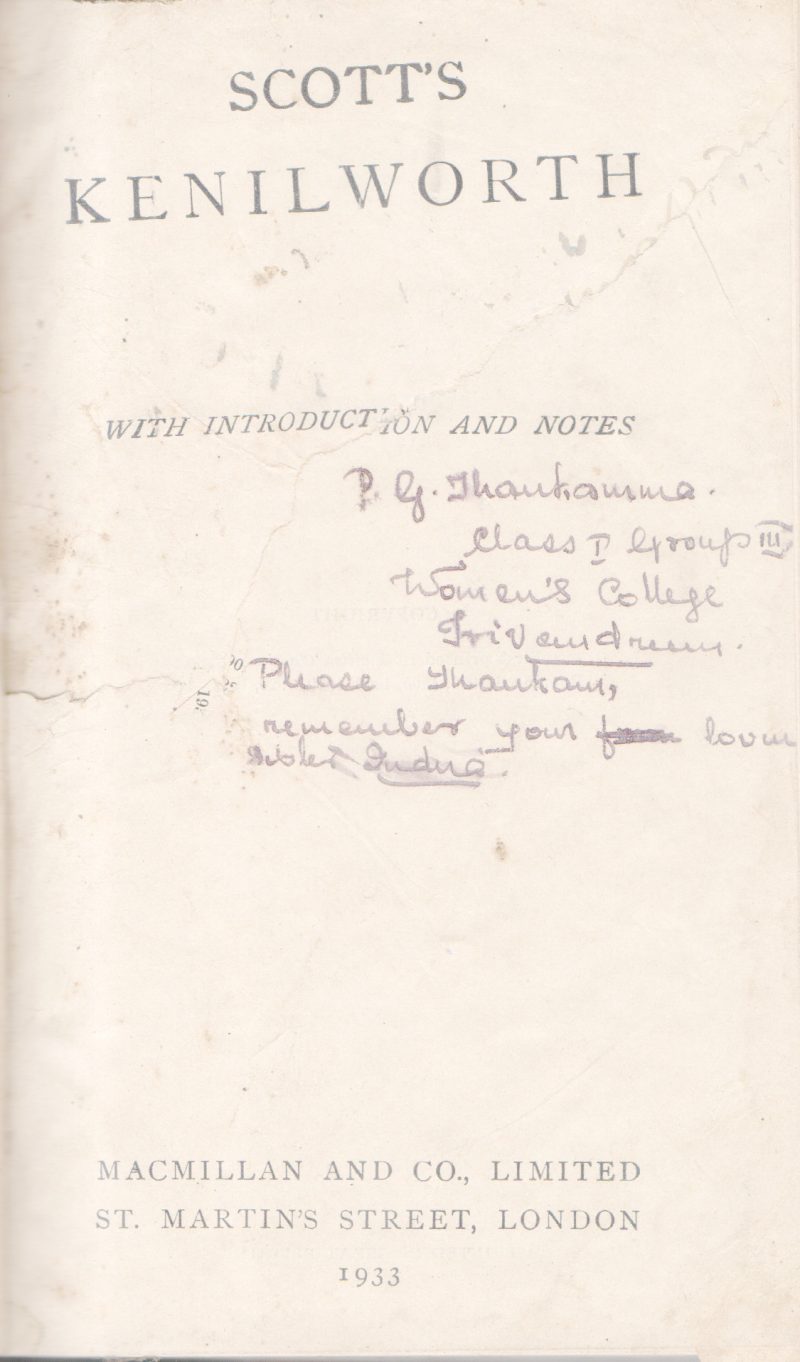 SCOTT'S
KENILWORTH
WITH INTRODUCTION AND NOTES
P. G. Thankamma.
Class I Group III
Women's College
Trivandrum.
Please Thankam,
remember your lovin
Sister Indira.
MACMILLAN AND CO., LIMITED
ST. MARTIN'S STREET, LONDON
1933